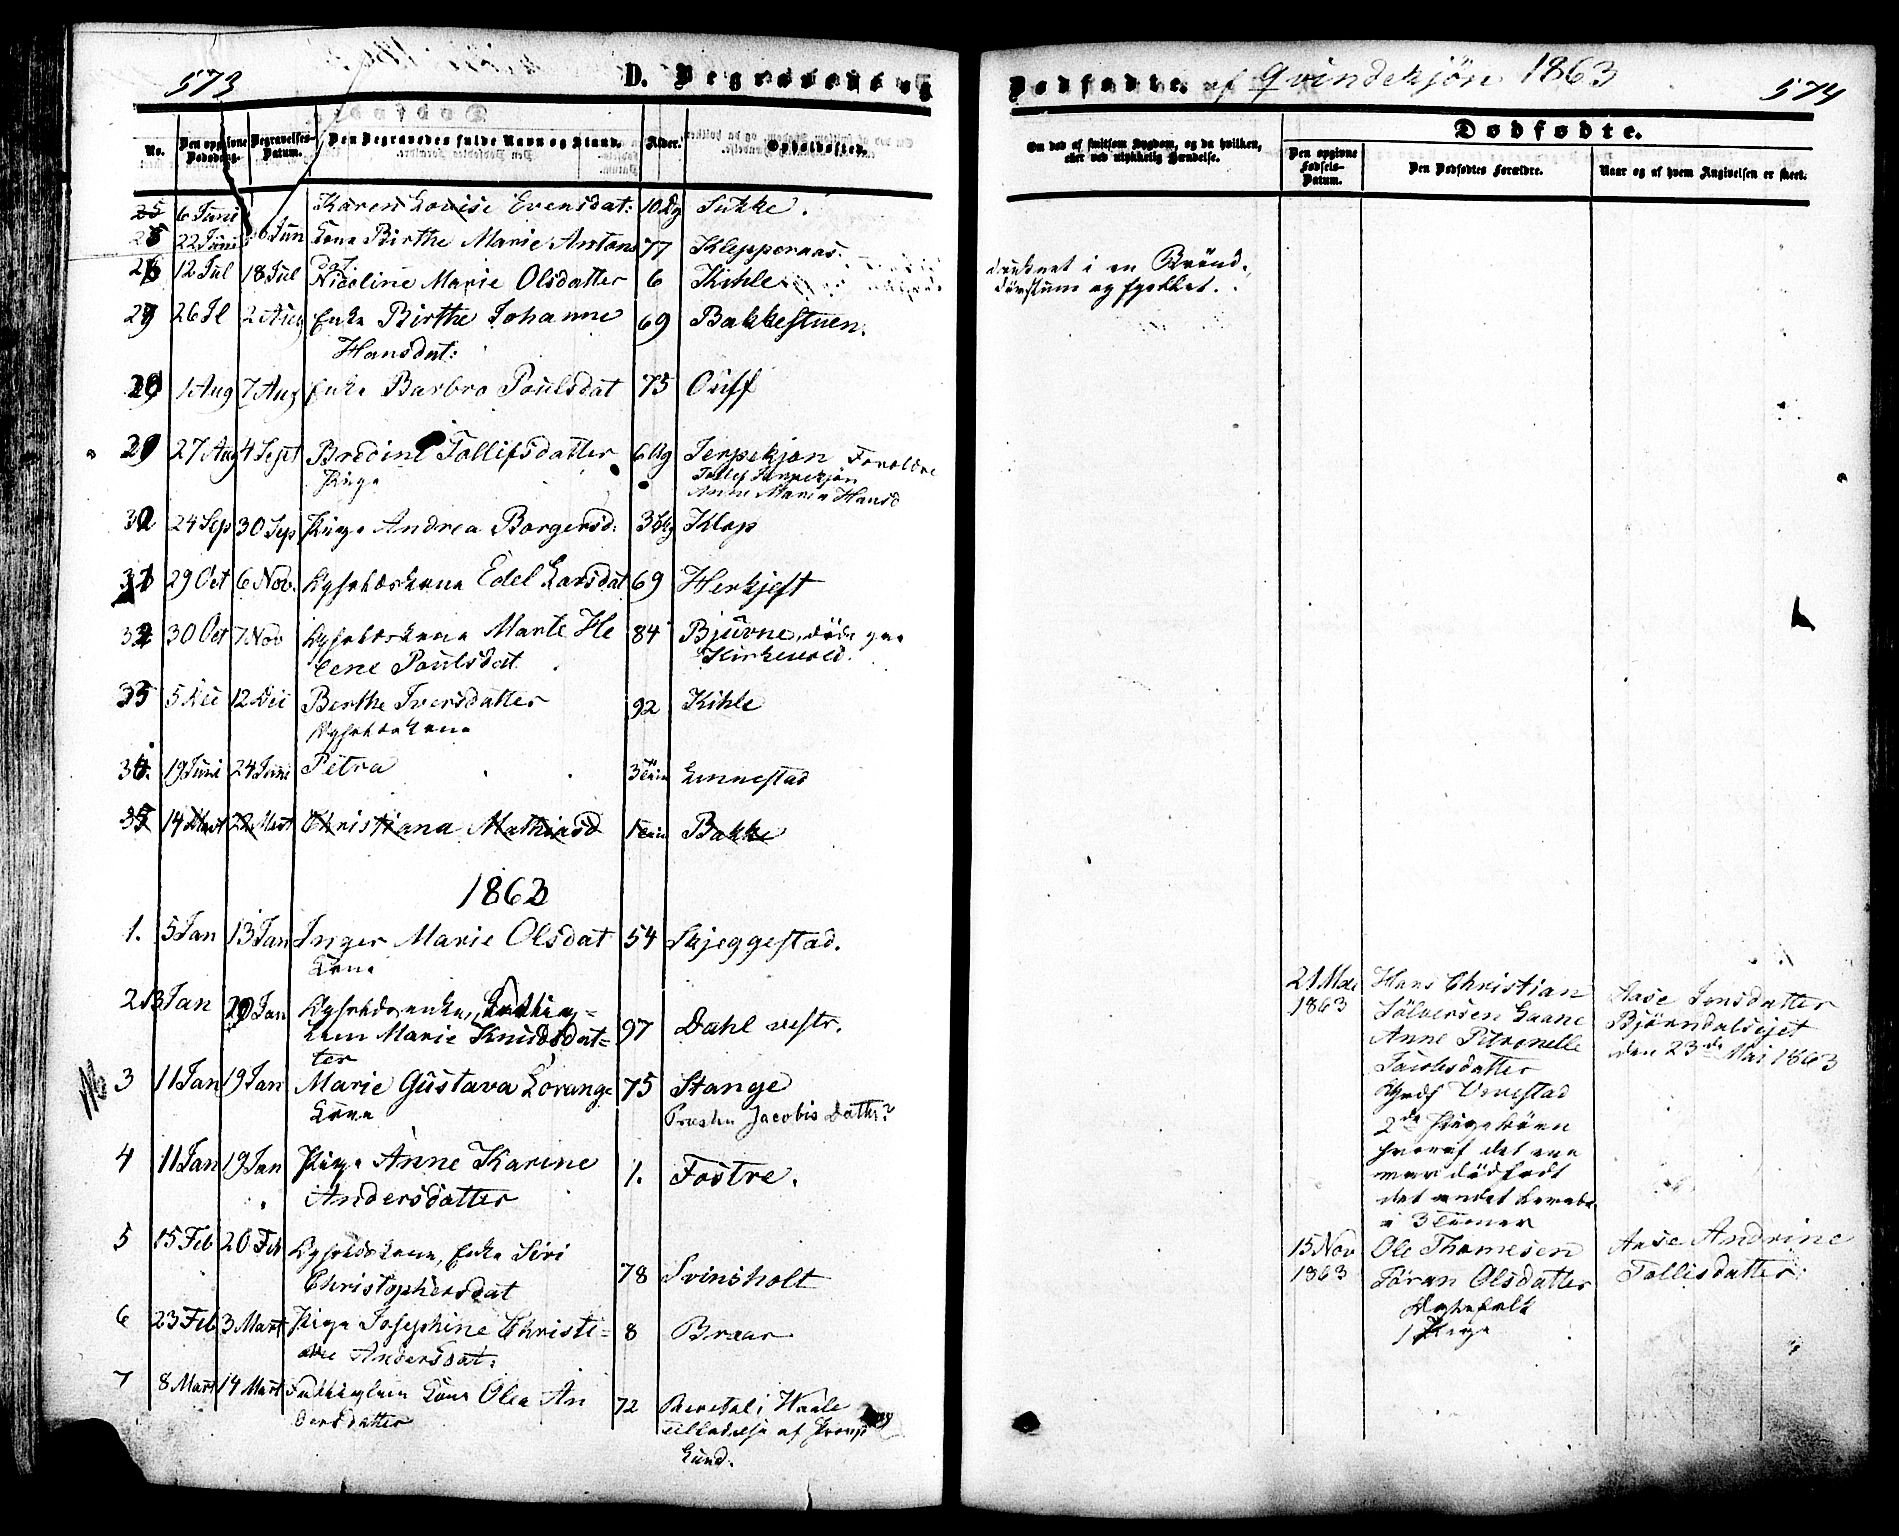 573
D. Begravede og
No.
Den opgivne Dødsdag.
Begravelses-Datum.
Den Begravedes fulde Navn og Stand.
Alder.
Opholdssted.
25 6 Juni Karen Lovise Evensdat: 10 Dg Sukke.
22 Juni Juni Kone Birthe Marie Antons 77 Kleppernaas.
dat
26 12 Jul 18 Jul Nicoline Marie Olsdatter 6 Kihle
27 26 Jl 2 Aug Enke Birthe Johanne 69 Bakkestuen.
Hansdat:
28 1 Aug 7 Aug Enke Barbro Poulsdat 75 Oulff
29 27 Aug 4 Sept Bredine Tollifsdatter 6 Ug Jerpekjøn Forældre
Pige Tollef Jerpekjøn
Anne Maria Hansd
30 24 Sep 30 Sep Pige Andrea Borgersd: 3 Klop
31 29 Oct 6 Nov. Edel Larsdat 69 Herkjest
32 30 Oct 7 Nov Marte He 84 Bjurne, døde paa
lene Paulsdat Kirkevold.
33 5 Dec 12 Dec Berthe Iversdatter 92 Kihle
34. 19 Juni 24 Juni Petra 3 Linnestad
35 14 Mart 22 Mart Christiana Mathiasd Bakke
1863
1. 5 Jan 13 Jan Inger Marie Olsdat 54 Skjeggestad.
Kone
2 13 Jan 20 Jan
lem Marie Knudsdat= 97 Dahl vestr.
ter
3 11 Jan 19 Jan Marie Gustava Lorange 75 Stange
Kone Jacobis Datter?
4 11 Jan 19 Jan Pige Anne Karine 1. Fostre.
Andersdatter
5 15 Feb 20 Feb Enke Siri
Christophersdat 78 Svinsholt
6 23 Feb 3 Mart Pige Josephine Christi= 8 Braar
ane Andersdat:
7 8 Mart 14 Mart Fattiglem Kone Olea An
dersdatter 72 i Haale
af
Lund.
Dødfødte. af Qvindekjøn 1863
574
Om død af smitsom Sygdom, og da hvilken, eller ved ulykkelig Hændelse.
Dødfødte.
Den opgivne Fødsels-Datum.
Den Dødfødtes Forældre.
Naar og af hvem Angivelsen er skeet.
druknet i en Brønd.
21 Mai Hans Christian
1863 Sølversen Gaane Aase Jensdatter
Anne Petronelle Bjørndalsejet
Jacobsdatter den 23de Mai 1863
Vennestad
2de Pigebørn
hvoraf det ene
var dødfødt
det andet levede
i 3 Timer
15 Nov Ole Thomesen Aase Andrine
1863 Jøran Olsdatter Tollisdatter.
1 Pige